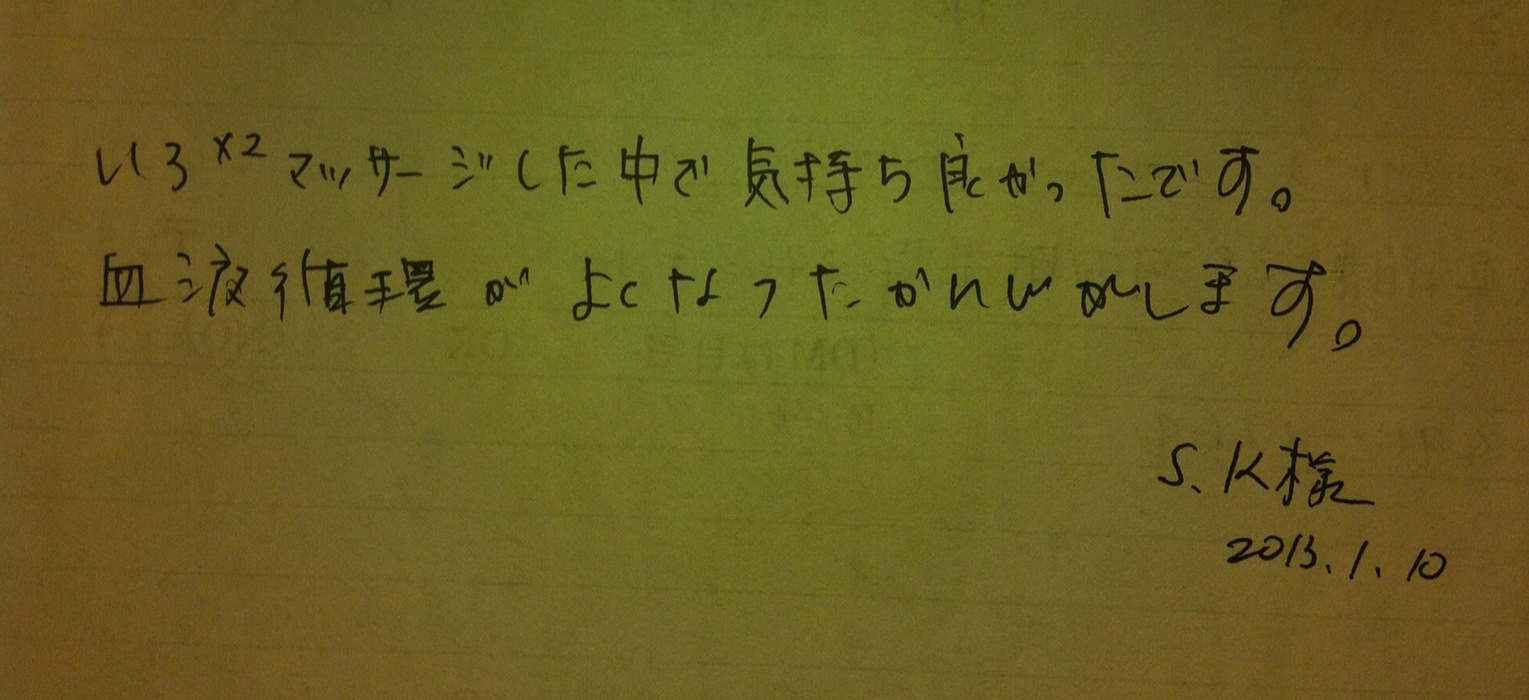 いろ×2マッサージした中で気持ち良かったです。
血液循環がよくなったかんじがします。
S.K様
2013.1.10